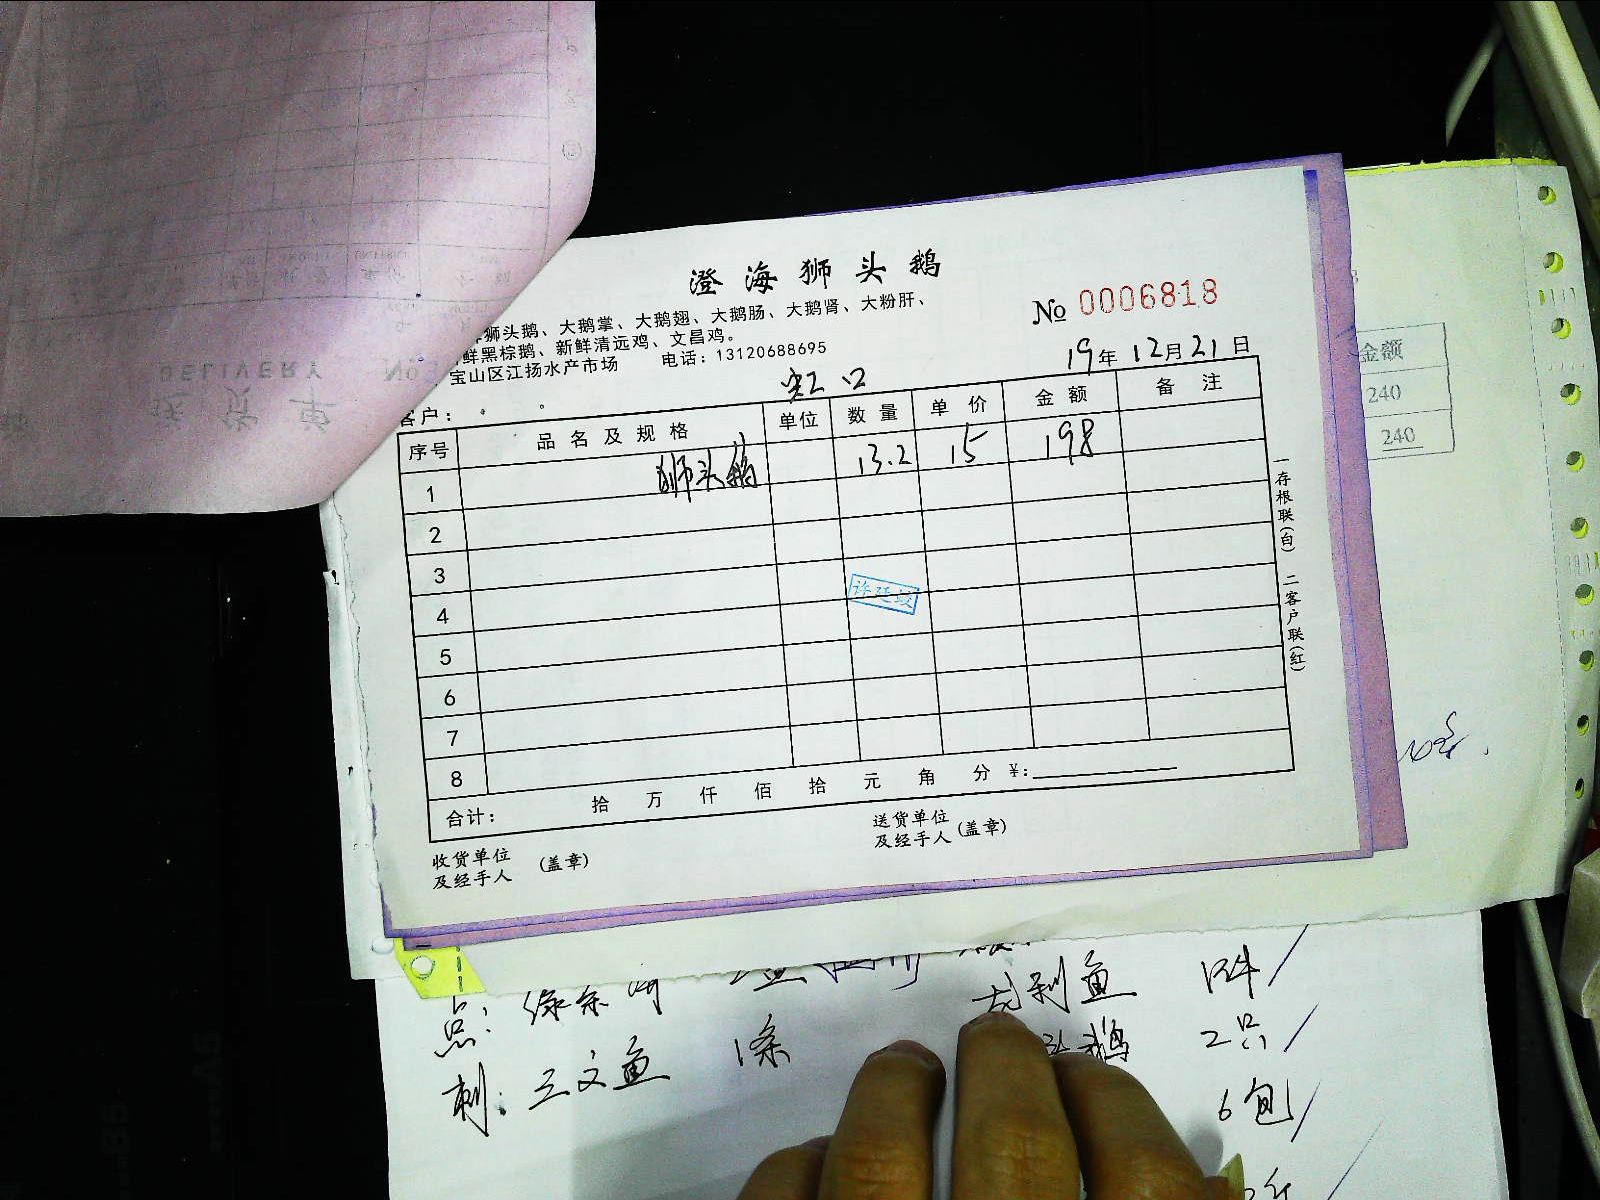 澄海狮头鹅
狮头鹅、大鹅掌、大鹅翅、大鹅肠、大鹅肾、大粉肝、
鲜黑棕鹅、新鲜清远鸡、文昌鸡。
宝山区江扬水产市场 电话：13120688695
No 0006818
19年12月21日
客户： 虹口
序号 品名及规格 单位 数量 单价 金额 备注
1 狮头鹅 13.2 15 198
2
3
4
5
6
7
8
许廷
合计： 拾 万 仟 佰 拾 元 角 分 ¥：
收货单位及经手人 (盖章)
送货单位及经手人 (盖章)
一存根联(白) 二客户联(红)
金额
240
240
DELIVERY
送货单
No
点：
刺：三文鱼 1条
剥鱼
头鹅 2只
6包